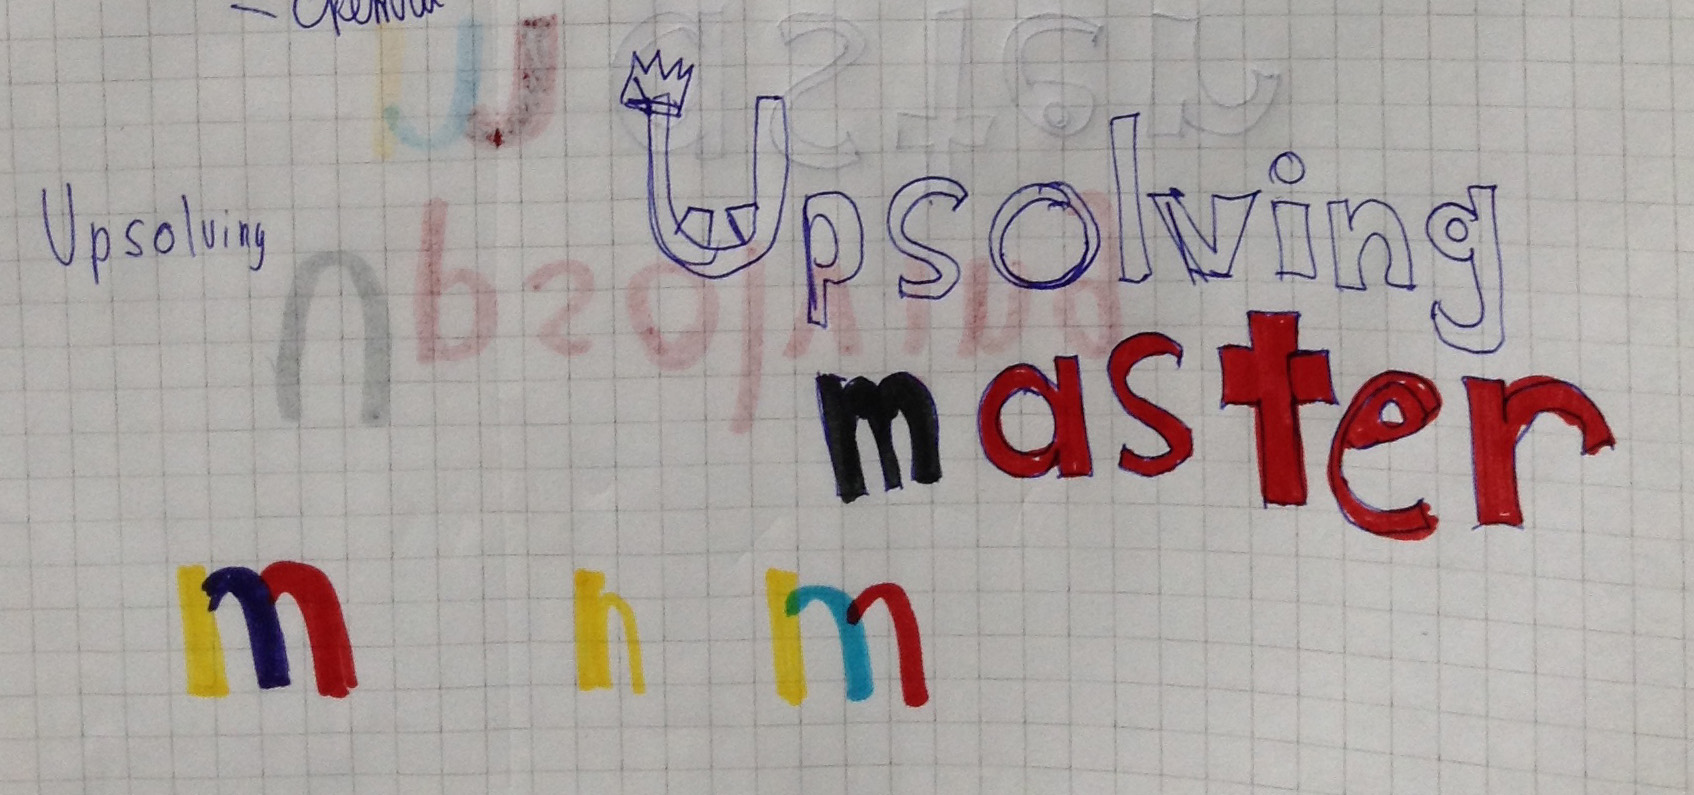 Upsolving
Upsolving
master
m n m